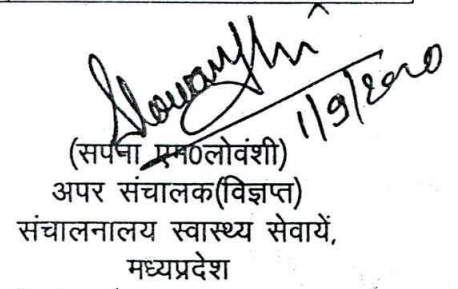 1/9/2020
(सपना एम0लोवंशी)
अपर संचालक(विज्ञप्त)
संचालनालय स्वास्थ्य सेवायें,
मध्यप्रदेश